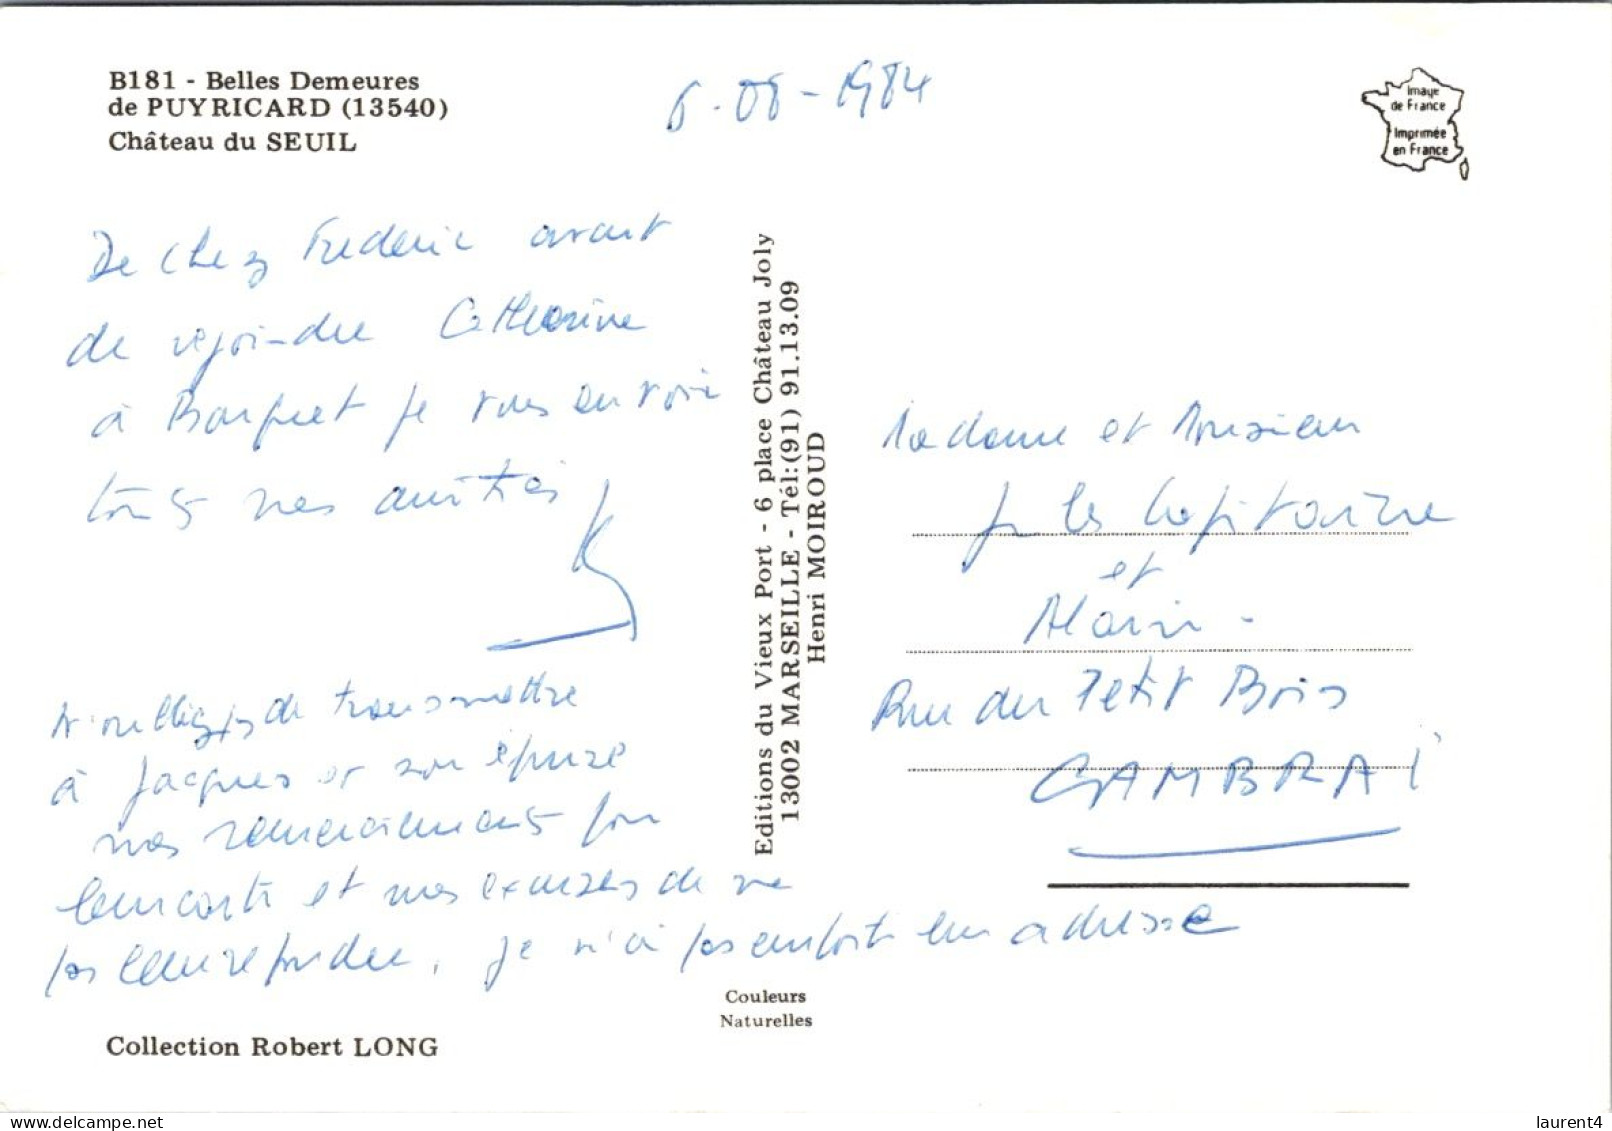 B181 - Belles Demeures
de PUYRICARD (13540)
Château du SEUIL
6-08-1984
Image
de France
Imprimée
en France
De chez Frederic avant
de rejoindre Catherine
à je vous envoie
tous nos amitiés
N'oubliez pas de transmettre
à Jacques et son épouse
nos remerciements pour
leur carte et nos excuses de ne
pas leur repondre, je n'ai pas emporté leur adresse
Collection Robert LONG
Editions du Vieux Port - 6 place Château Joly
13002 MARSEILLE - Tél:(91) 91.13.09
Henri MOIROUD
Couleurs
Naturelles
Madame et Monsieur
et
Alain -
Rue du Petit Bois
CAMBRAI
laurent4